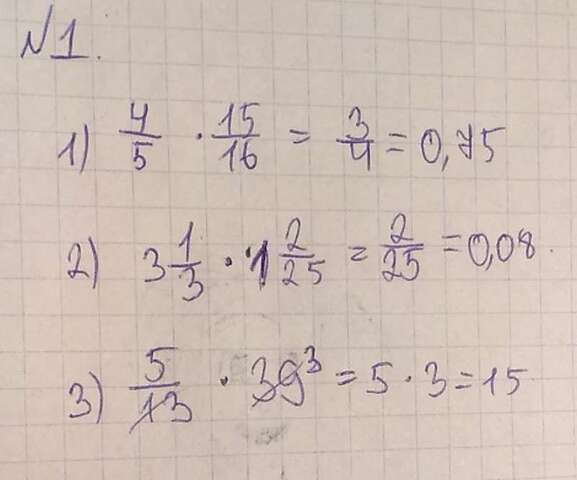 №1.
1) 4/5 · 15/16 = 3/4 = 0,75
2) 3 1/3 · 1 2/25 = 2/25 = 0,08.
3) 5/13 · 39³ = 5 · 3 = 15